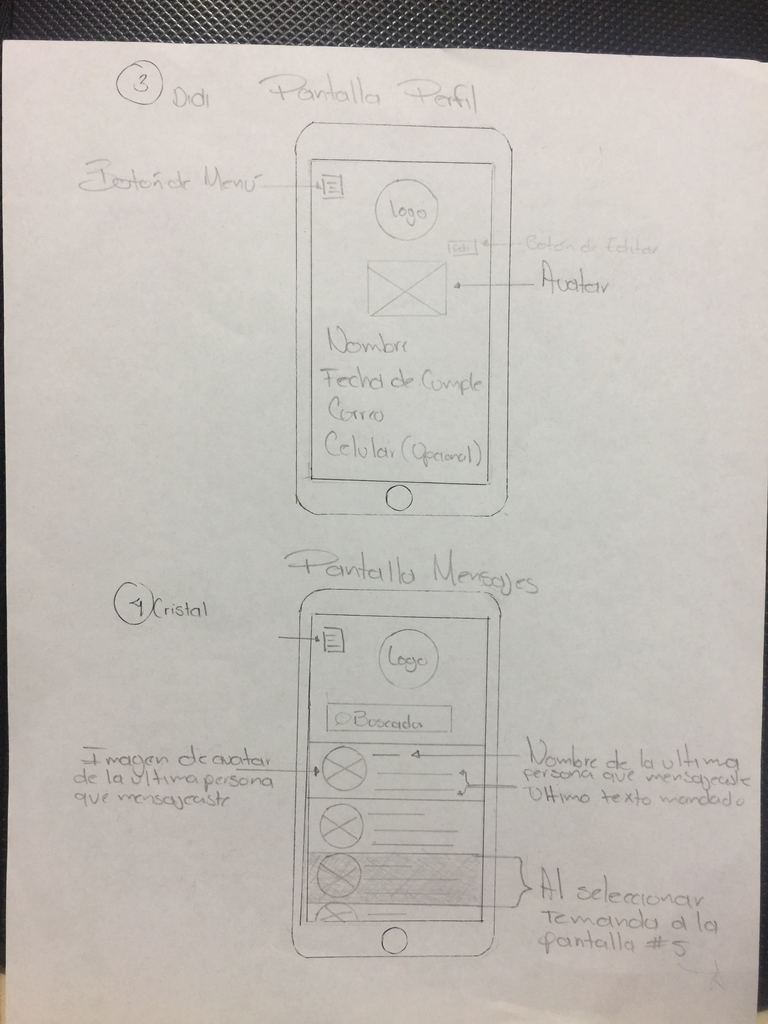 3 Didi Pantalla Perfil
Botón de Menú
Logo
Edit
Botón de Editar
Avatar
Nombre
Fecha de Cumple
Correo
Celular (Opcional)
Pantalla Mensajes
4 Cristal
Logo
Buscada
Imagen de avatar
de la ultima persona
que mensajeaste
Nombre de la ultima
persona que mensajeaste
Ultimo texto mandado
Al seleccionar
Temanda a la
pantalla #5